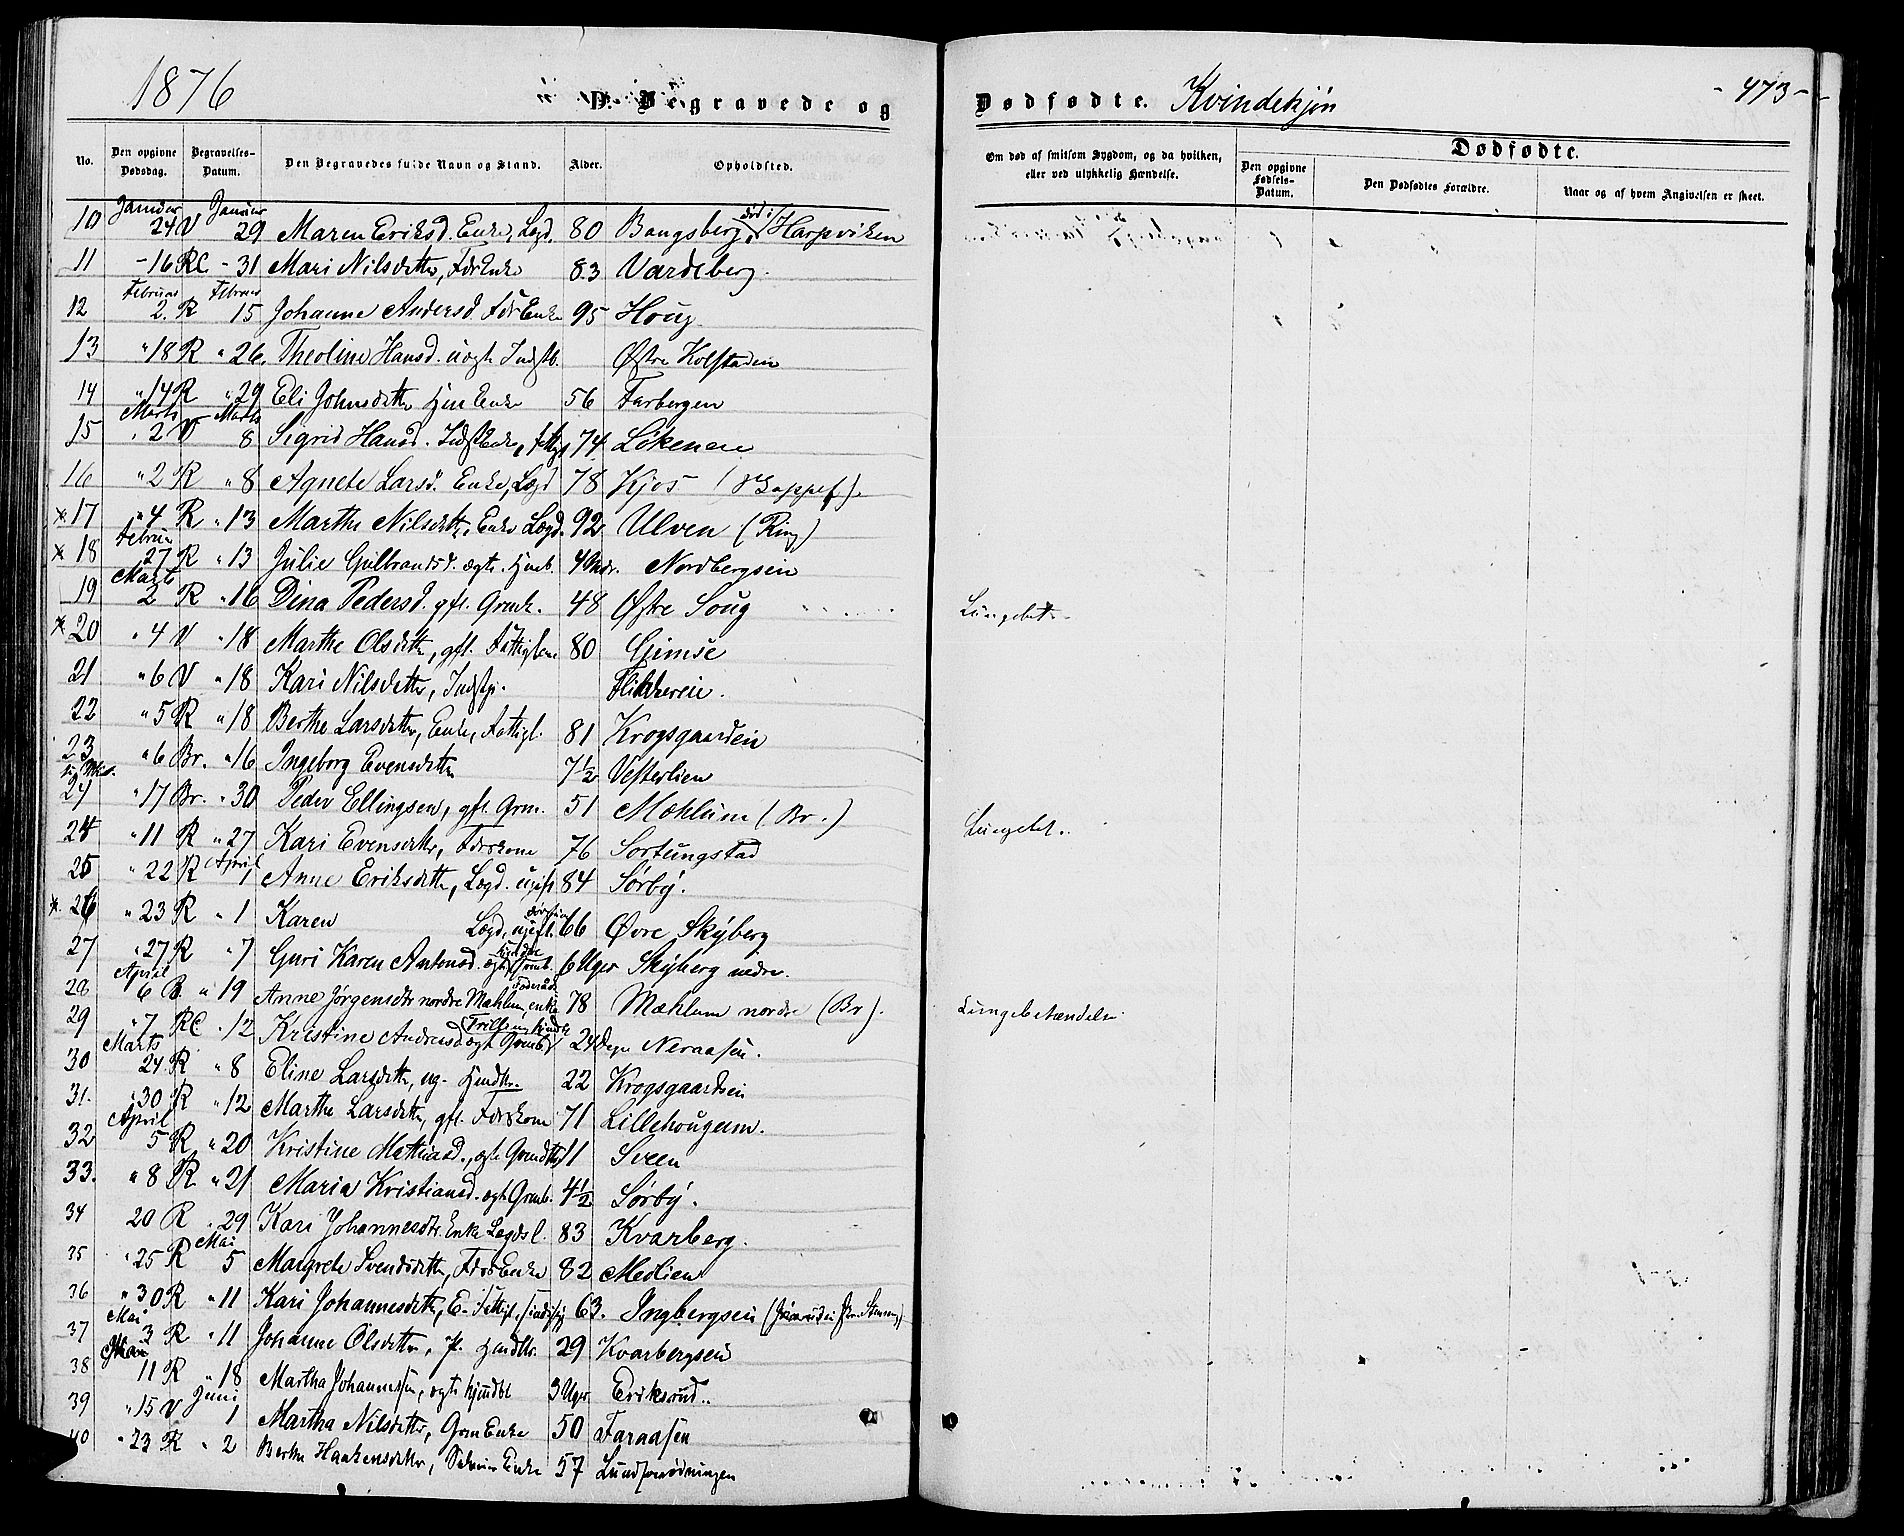 1876
D. Begravede og
Dødfødte. Kvindekjøn
- 473 -
No.
Den opgivne Dødsdag.
Begravelses-Datum.
Den Begravedes fulde Navn og Stand.
Alder.
Opholdssted.
Om død af smitsom Sygdom, og da hvilken, eller ved ulykkelig Hændelse.
Dødfødte.
Den opgivne Fødsels-Datum.
Den Dødfødtes Forældre.
Naar og af hvem Angivelsen er skeet.
Januar Januar
10 24 V 29 Maren Eriksd. Enke, Lægd. 80 Bangsberg, død i Harpviken
11 - 16 RC - 31 Mari Nilsdatter, FdrEnke 83 Vardeberg.
Februar Februar
12 2. R 15 Johanne Andersd. FdrEnke 95 Houg
13 " 18 R " 26 Theoline Hansd. uægte Indstb. Østre Kolstaden
14 " 14 R " 29 Eli Johnsdatter Hjm Enke 56 Farbergen
Marts Marts
15 " 2 V 8 Sigrid Hansd. IndstEnke, fattigl 74 Løkenen
16 " 2 R " 8 Agnete Larsd. Enke, Lægd 78 Kjos
x 17 " 4 R " 13 Marthe Nilsdatter, Enke Lægd. 92 Ulven (Ring)
Februar
x 18 27 R " 13 Julie Gulbrandsd. ægte Hjmb. 4 Mdr. Nordbergseie
Marts
19 2 R " 16 Dina Pedersd. gft. Grmk. 48 Østre Soug Lungebet.
x 20 " 4 V " 18 Marthe Olsdatter, gft. Fattiglem 80 Gimse
21 " 6 V " 18 Kari Nilsdatter, Indstpi. Flikkereie.
22 " 5 R " 18 Berthe Larsdatter, Enke, Fattigl. 81 Krogsgaardeie
23 " 6 Br. " 16 Ingeborg Evensdatter 7½ Vesterlien
24 " 17 Br. " 30 Peder Ellingsen, gft. Grm. 51 Mæhlum (Br.)
24 " 11 R " 27 Kari Evensdatter, Fdrskone 76 Sortungstad Lungebet.
April
25 " 22 R 1 Anne Eriksdatter, Lægd. ugift 84 Sørby.
x. 26 " 23 R " 1 Karen Lægd, ugift. 66 Øvre Skyberg
27 " 27 R " 7 Guri Karen Antonsd. ægte 6 Uger Skyberg nedre.
April
28 6 B " 19 Anne Jørgensdtr nordre Mæhlum, enke 78 Mæhlum nordre (Br). Lungebetændelse
29 " 7 RC " 12 Kristine Andersd ægte 24 Dage Neraasen.
Marts
30 24 R " 8 Eline Larsdatter, ug. Hmdtr. 22 Krogsgaardseie
31. " 30 R " 12 Marthe Larsdatter, gft. Fdrskone 71 Lillehougeim.
April
32 5 R " 20 Kristine Mathiasd., ægte Grmdtr 11 Sveen
33. " 8 R " 21 Maria Kristiansd. ægte Grmb. 4½ Sørby.
34 20 R " 29 Kari Johannesdtr. Enke Lægdsl. 83 Kvarberg.
Mai
35 " 25 R 5 Margrete Svendsdatter, FdrEnke 82 Meslien
36 " 30 R " 11 Kari Johannesdatter, E- Fattigl. 63. Ingbergseie
Mai
37 3 R " 11 Johanne Olsdatter, P. Hmdtr. 29 Kvarbergseie
Mai
38 11 R " 18 Martha Johannessen, ægte Hjmdbt 3 Uger Eriksrud.
Juni
39 " 15 V 1 Martha Nilsdatter, Grm Enke 50 Faraasen
40 " 23 R " 2 Berthe Haakensdatter, Enke 57